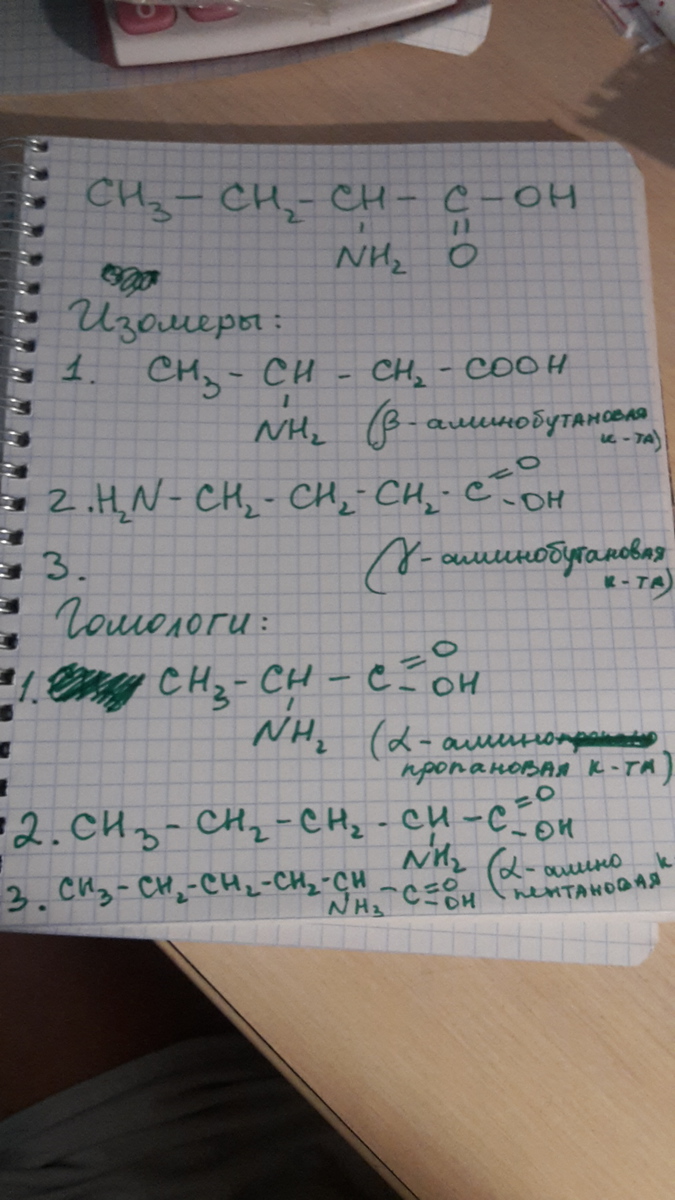 CH₃ – CH₂ – CH – C – OH
NH₂ O
Изомеры:
1. CH₃ – CH – CH₂ – COOH
NH₂ (β-аминобутановая
к-та)
2. H₂N – CH₂ – CH₂ – CH₂ – C = O – OH
3. (γ-аминобутановая
к-та)
Гомологи:
1. CH₃ – CH – C = O – OH
NH₂ (α-амино
пропановая к-та)
2. CH₃ – CH₂ – CH₂ – CH – C = O – OH
NH₂ (α-амино к
пентановая
3. CH₃ – CH₂ – CH₂ – CH₂ – CH – C = O – OH
NH₃